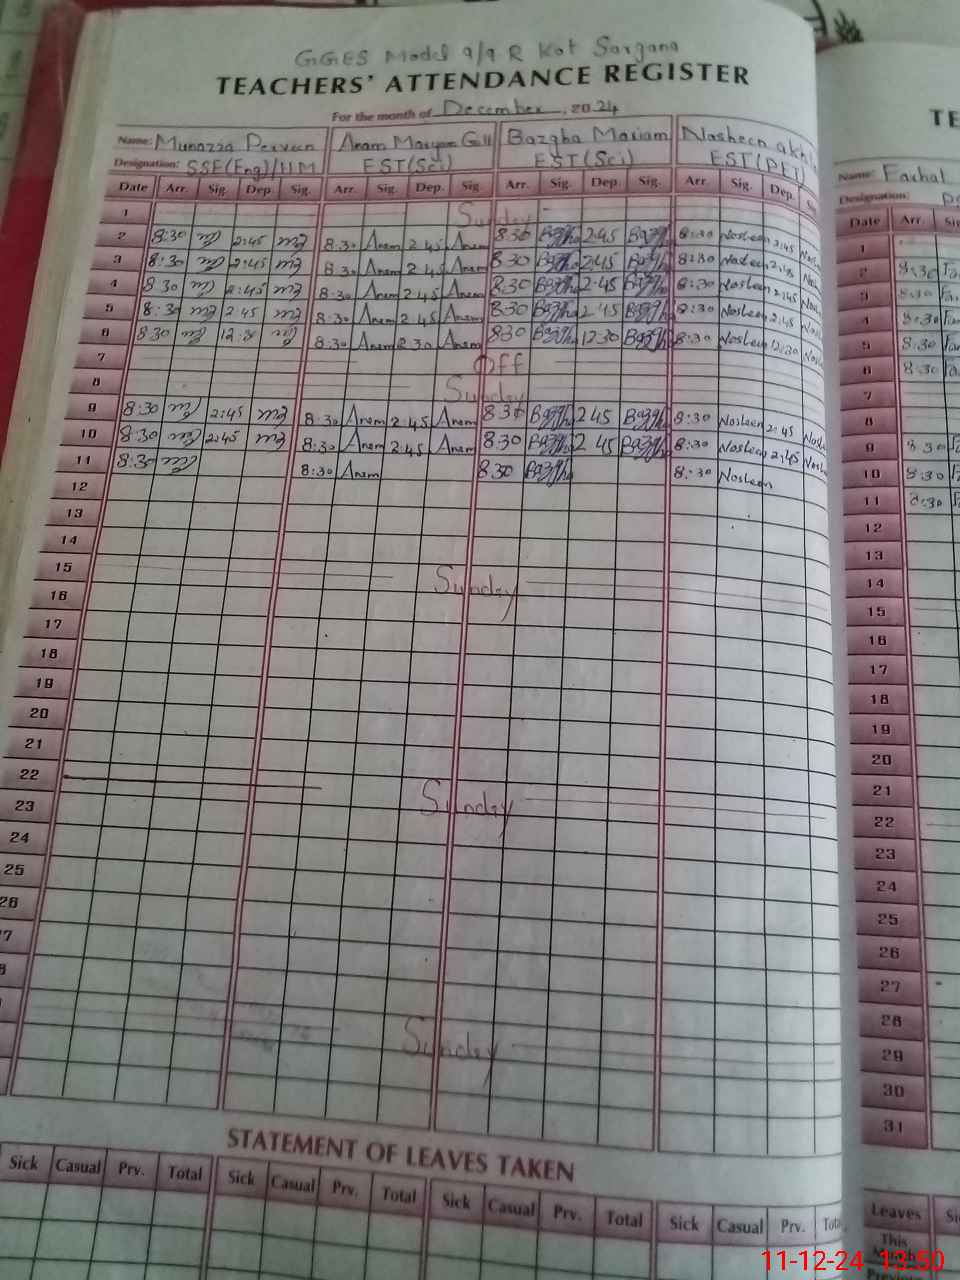 GGES Model 9/9 R Kot Sargana
TEACHERS' ATTENDANCE REGISTER
For the month of December, 2024
Name: Munazza Perveen Anam Maryam Gill Bazgha Mariam Nosheen akh
Designation: SSE(Eng)/HM EST(Sci) EST(Sci) EST(PET)
Date Arr. Sig. Dep. Sig. Arr. Sig. Dep. Sig. Arr. Sig. Dep. Sig. Arr. Sig. Dep. Sig.
1 Sunday
2 8:30 2:45 8:30 Anam 2:45 Anam 8:30 Bazgha 2:45 Bazgha 8:30 Nosheen 2:45 Nosh
3 8:30 2:45 8:30 Anam 2:45 Anam 8:30 Bazgha 2:45 Bazgha 8:30 Nosheen 2:45 Nosh
4 8:30 2:45 8:30 Anam 2:45 Anam 8:30 Bazgha 2:45 Bazgha 8:30 Nosheen 2:45 Nosh
5 8:30 2:45 8:30 Anam 2:45 Anam 8:30 Bazgha 2:45 Bazgha 8:30 Nosheen 2:45 Nosh
6 8:30 Anam Anam 8:30 Bazgha 12:30 Bazgha 8:30 Nosheen 12:30 Nosh
7 Off
8 Sunday
9 8:30 2:45 8:30 Anam 2:45 Anam 8:30 Bazgha 2:45 Bazgha 8:30 Nosheen 2:45 Nosh
10 8:30 2:45 8:30 Anam 2:45 Anam 8:30 Bazgha 2:45 Bazgha 8:30 Nosheen 2:45 Nosh
11 8:30 8:30 Anam 8:30 Bazgha 8:30 Nosheen
12
13
14
15 Sunday
16
17
18
19
20
21
22 Sunday
23
24
25
26
7
Sunday
STATEMENT OF LEAVES TAKEN
Sick Casual Prv. Total Sick Casual Prv. Total Sick Casual Prv. Total Sick Casual Prv. Total
TE
Name: Farhat
Designation:
Date Arr. Si
1
2 8:30
3 8:30
4 8:30
5 8:30
6 8:30
7
8
9 8:30
10 8:30
11 8:30
12
13
14
15
16
17
18
19
20
21
22
23
24
25
26
27
28
29
30
31
Leaves Si
This
Month
11-12-24 13:50